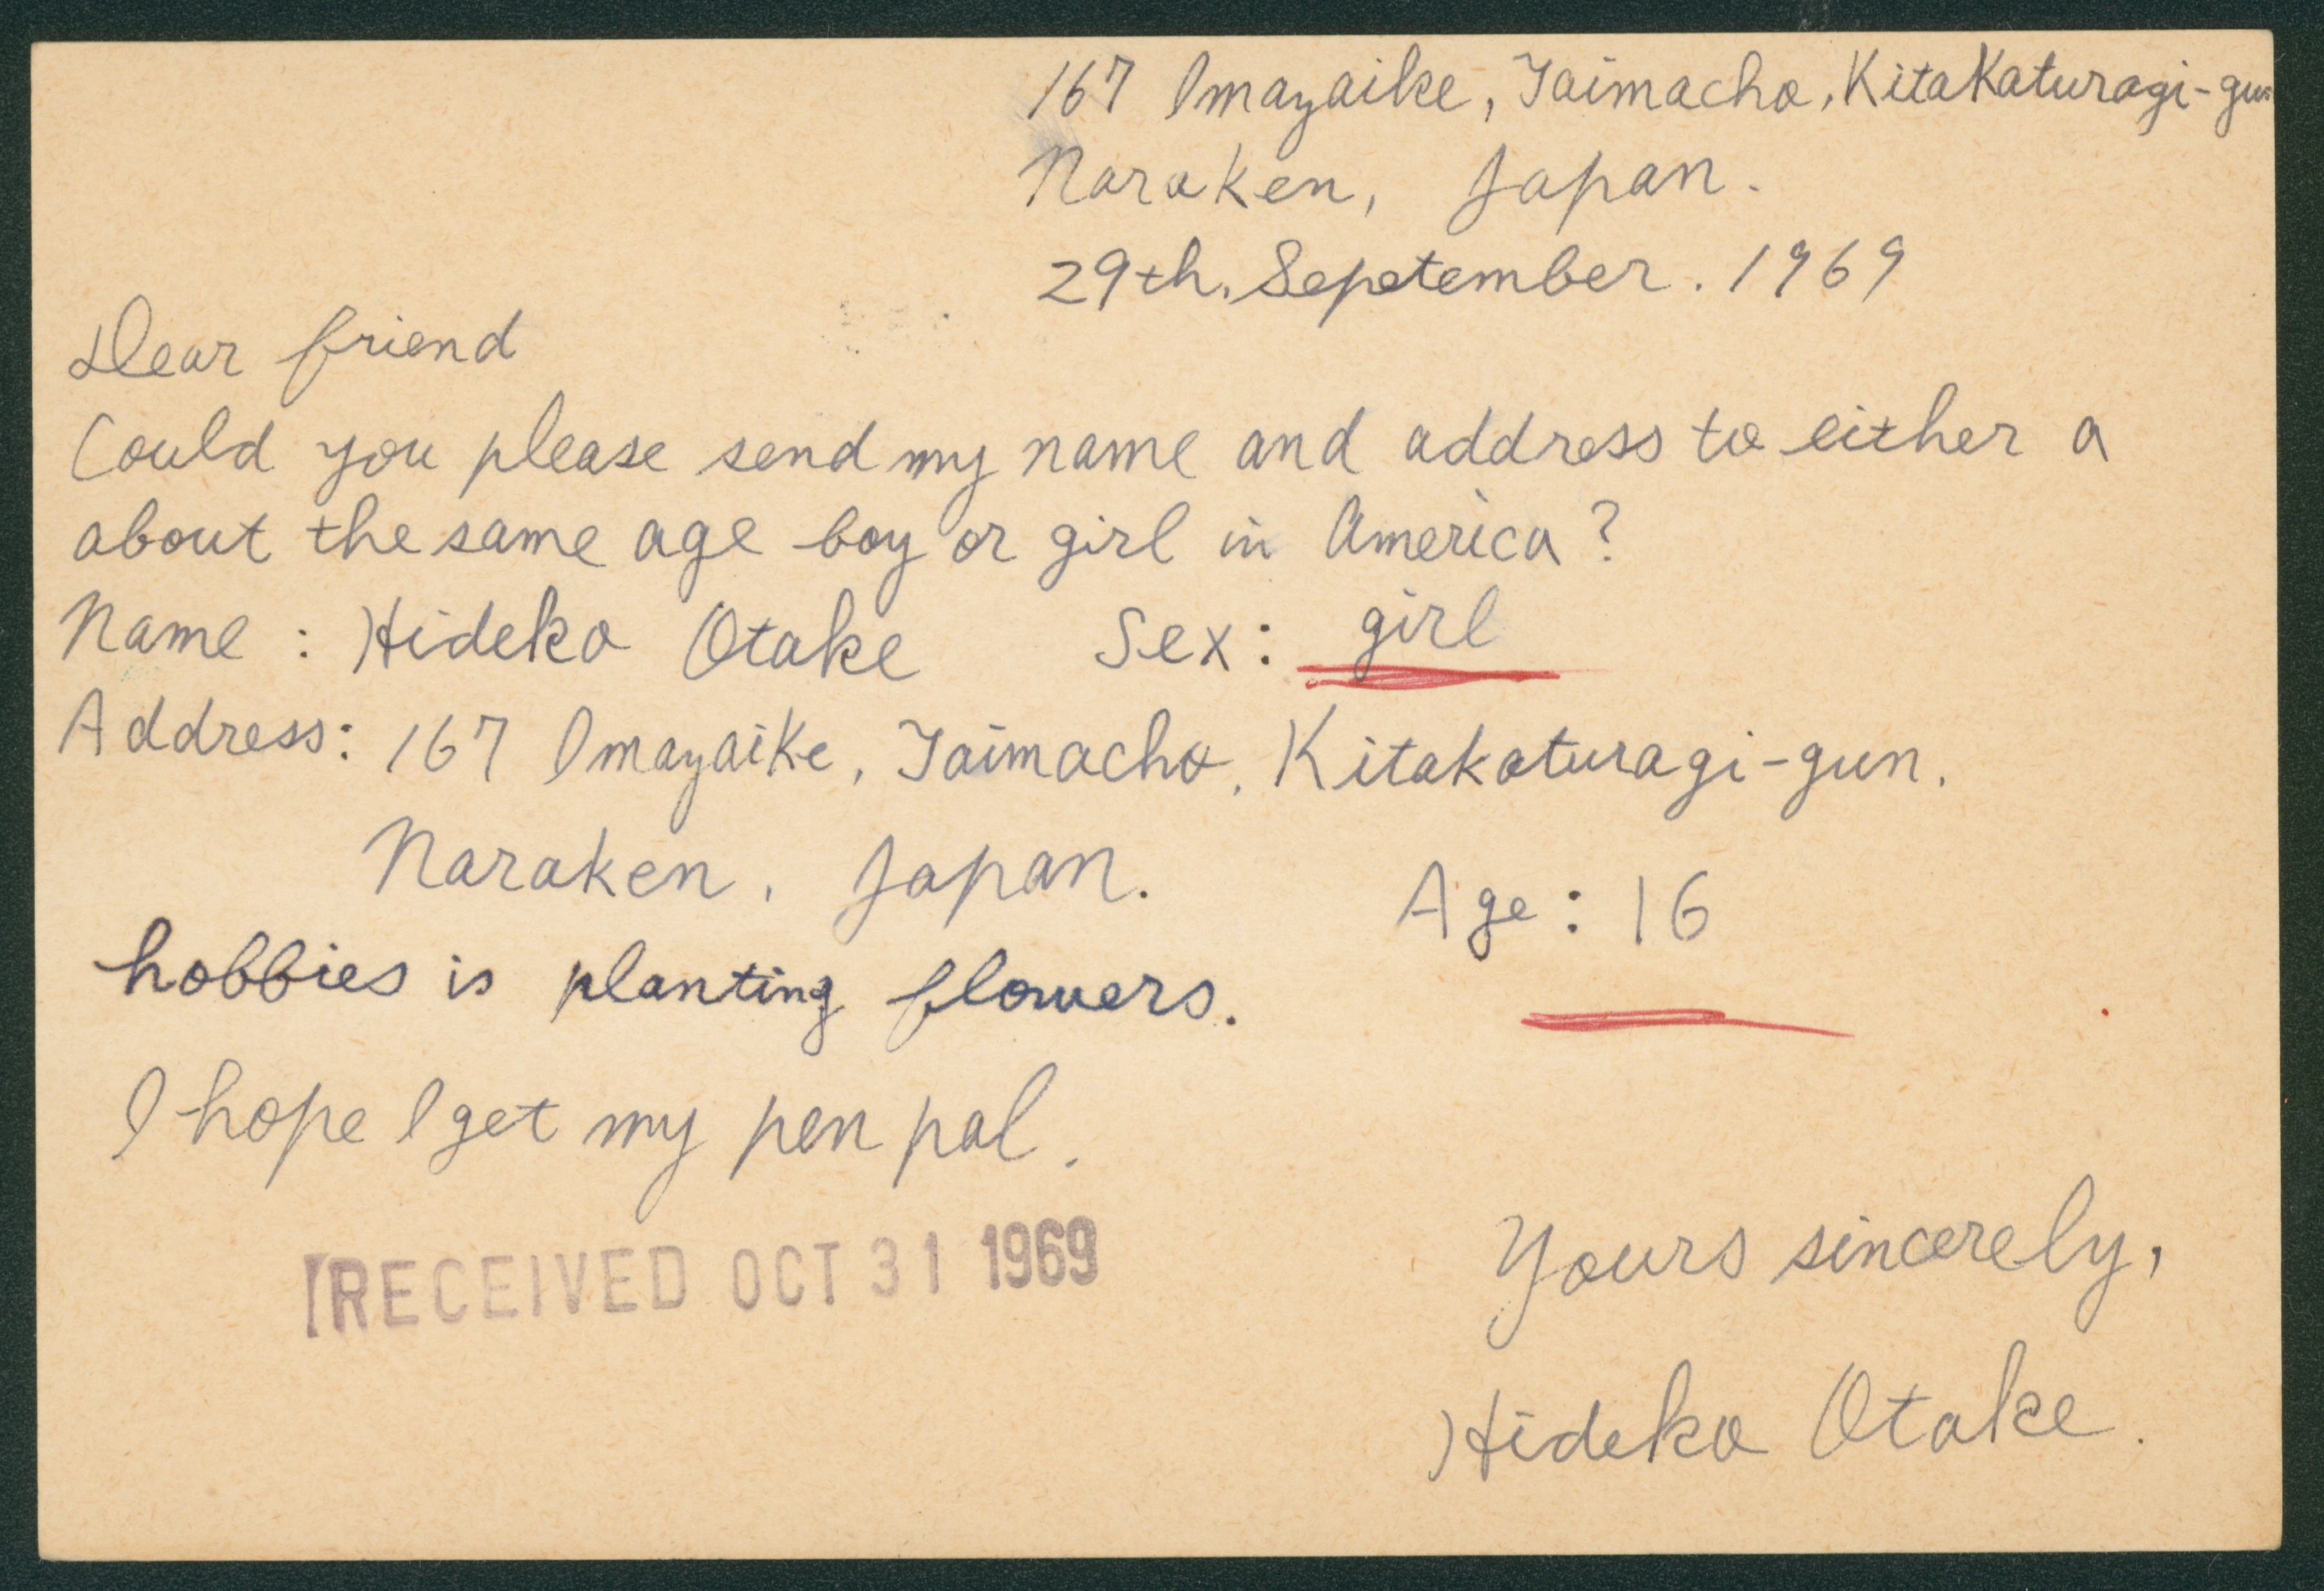 167 Imazaike, Taimacho, Kitakaturagi-gun
Naraken, Japan.
29th. Sepetember. 1969
Dear friend
Could you please send my name and address to either a
about the same age boy or girl in America?
Name : Hideko Otake Sex: girl
Address: 167 Imazaike, Taimacho, Kitakaturagi-gun.
Naraken, Japan.
Age : 16
hobbies is planting flowers.
I hope I get my pen pal.
RECEIVED OCT 31 1969
Yours sincerely,
Hideko Otake.